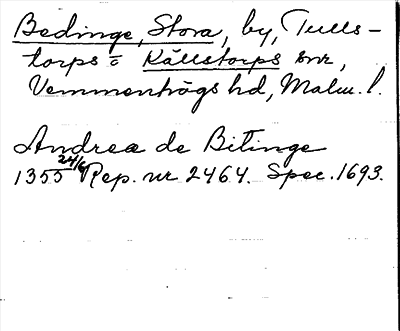 Bedinge, Stora, by, Tulls-
torps o Källstorps snr,
Vemmenhögs hd, Malm. l.
Andrea de Bitinge
1355 24/6 Rep. nr 2464. Spec. 1693.